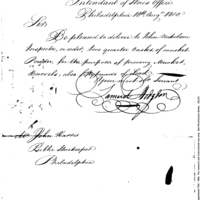 Intendant of Stores Office
Philadelphia 18th Augt 1800
Sir
Be pleased to deliver to John Nicholson
Inspector, or order, two quarter Casks of musket
Powder, for the purposes of proving Musket
Barrels, also
Your most Ob Servant
Samuel Hodgdon
Mr John Harris
Public Storekeeper
Philadelphia